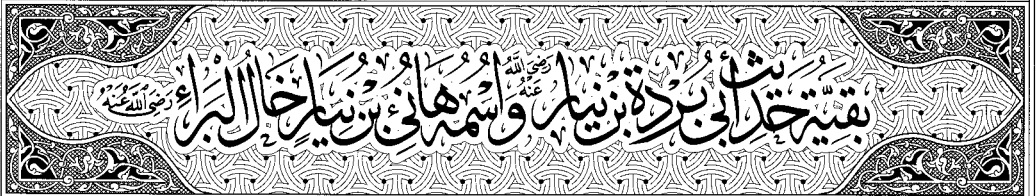 بَقِيَّةُ حَدِيثِ أَبِي بُرْدَةَ بْنِ نِيَارٍ رَضِيَ اللَّهُ عَنْهُ وَاسْمُهُ هَانِئُ بْنُ نِيَارٍ خَالُ الْبَرَاءِ رَضِيَ اللَّهُ عَنْهُ